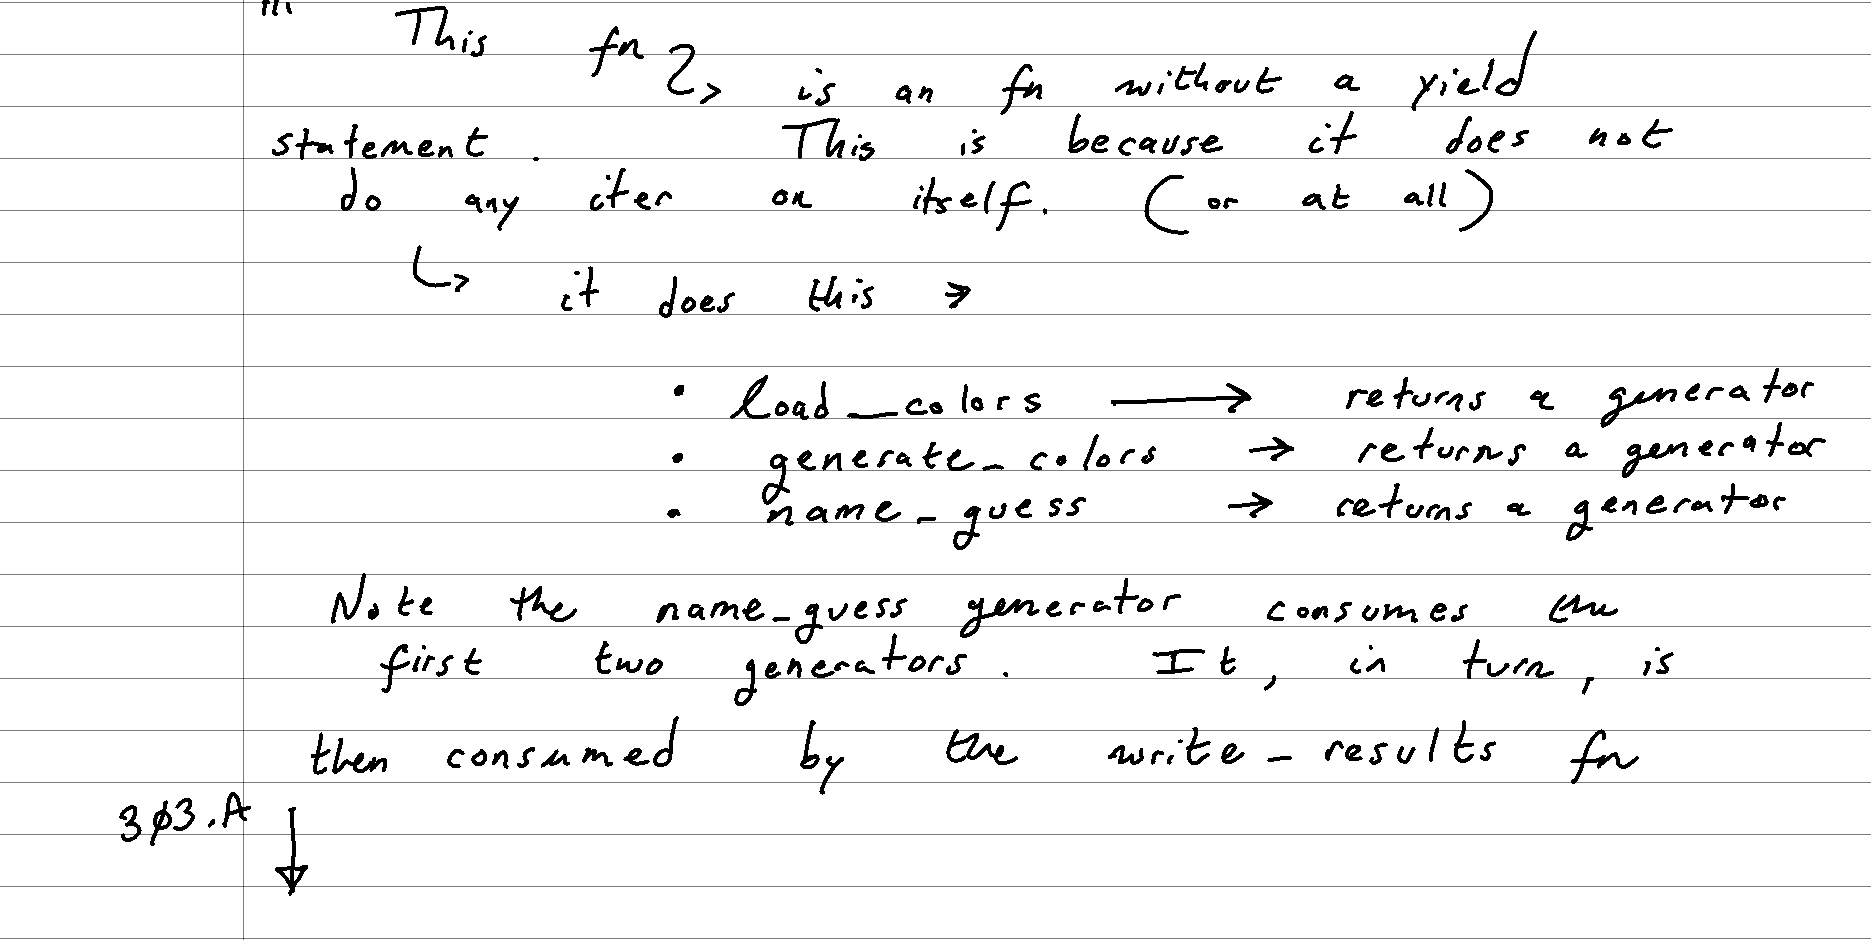 This fn
is an fn without a yield
statement. This is because it does not
do any iter on itself. (or at all)
it does this →
• load_colors → returns a generator
• generate_colors → returns a generator
• name_guess → returns a generator
Note the name_guess generator consumes the
first two generators. It, in turn, is
then consumed by the write_results fn
3φ3.A ↓